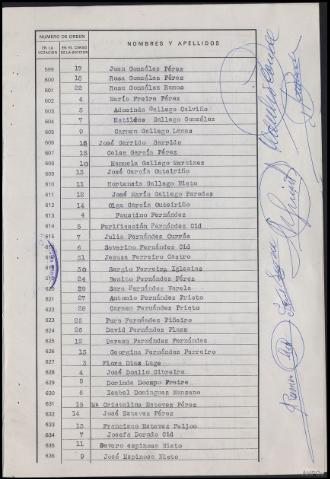 NUMERO DE ORDEN
EN LA VOTACION
EN EL CENSO
NOMBRES Y APELLIDOS
599 17 Juan González Pérez
600 18 Rosa González Pérez
601 22 Rosa González Ramos
602 4 María Freire Pérez
603 3 Gallego Calviño
604 7 Matilde Gallego González
605 9 Carmen Gallego Lamas
606 15 José Garrido Garrido
607 13 Celsa García Pérez
608 10 Manuela Gallego Martinez
609 13 José García Outeiriño
610 11 Hortensia Gallego Nieto
611 12 José María Gallego Paredes
612 14 Olga García Outeiriño
613 4 Faustino Fernández
614 5 Purificación Fernández Cid
615 7 Julia Fernández Currás
6 Severino Fernández Cid
21 Jesusa Ferreiro Castro
30 Sergio Ferreira Iglesias
24 Benito Fernández Pérez
29 Sara Fernández Varela
27 Antonio Fernández Prieto
28 Carmen Fernández Prieto
623 25 Pura Fernández Piñeiro
624 26 David Fernández
625 12 Teresa Fernández Fernández
626 15 Georgina Fernández Ferreiro
627 3 Flora Diaz Lage
628 4 José
629 5 Dorinda Docampo Freire
630 6 Isabel Dominguez Manzano
631 15 Cristalina Estevez Pérez
632 14 José Estevez Pérez
633 13 Francisco Estevez Feijoo
634 7 Josefa Dorado Cid
635 11 Severo espinosa Nieto
636 9 José Espinosa Nieto